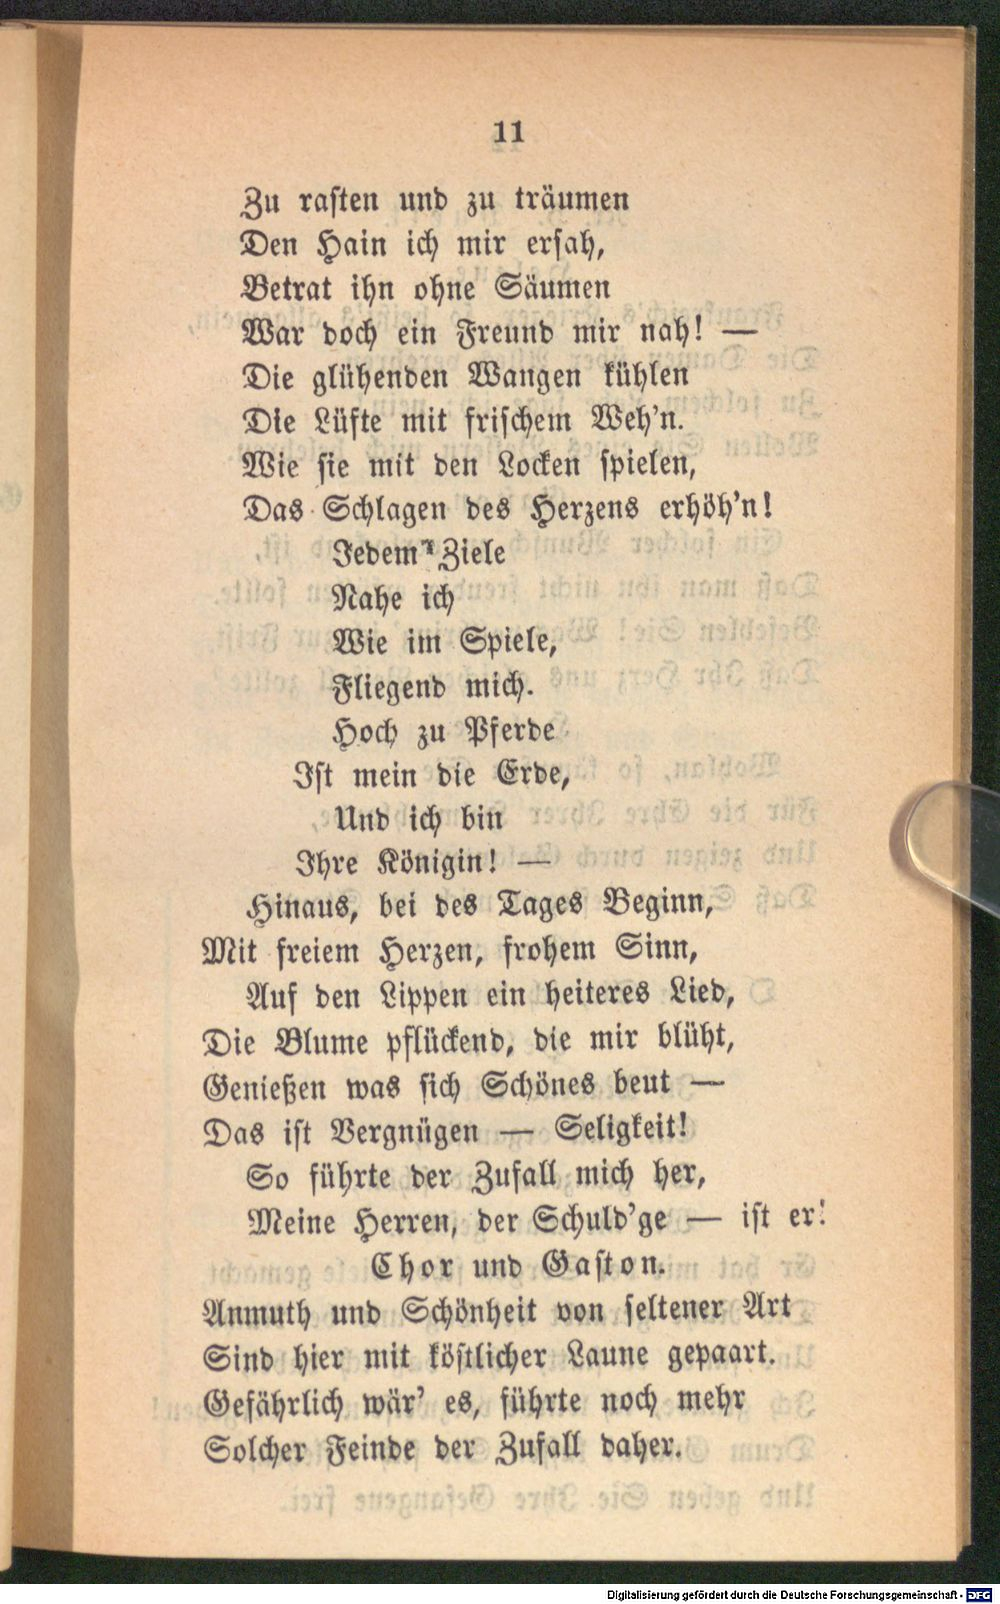 11
Zu rasten und zu träumen
Den Hain ich mir ersah,
Betrat ihn ohne Säumen
War doch ein Freund mir nah! —
Die glühenden Wangen kühlen
Die Lüfte mit frischem Weh'n.
Wie sie mit den Locken spielen,
Das Schlagen des Herzens erhöh'n!
Jedem Ziele
Nahe ich
Wie im Spiele,
Fliegend mich.
Hoch zu Pferde
Ist mein die Erde,
Und ich bin
Ihre Königin! —
Hinaus, bei des Tages Beginn,
Mit freiem Herzen, frohem Sinn,
Auf den Lippen ein heiteres Lied,
Die Blume pflückend, die mir blüht,
Genießen was sich Schönes beut —
Das ist Vergnügen — Seligkeit!
So führte der Zufall mich her,
Meine Herren, der Schuld'ge — ist er!
Chor und Gaston.
Anmuth und Schönheit von seltener Art
Sind hier mit köstlicher Laune gepaart.
Gefährlich wär' es, führte noch mehr
Solcher Feinde der Zufall daher.
Digitalisierung gefördert durch die Deutsche Forschungsgemeinschaft - DFG